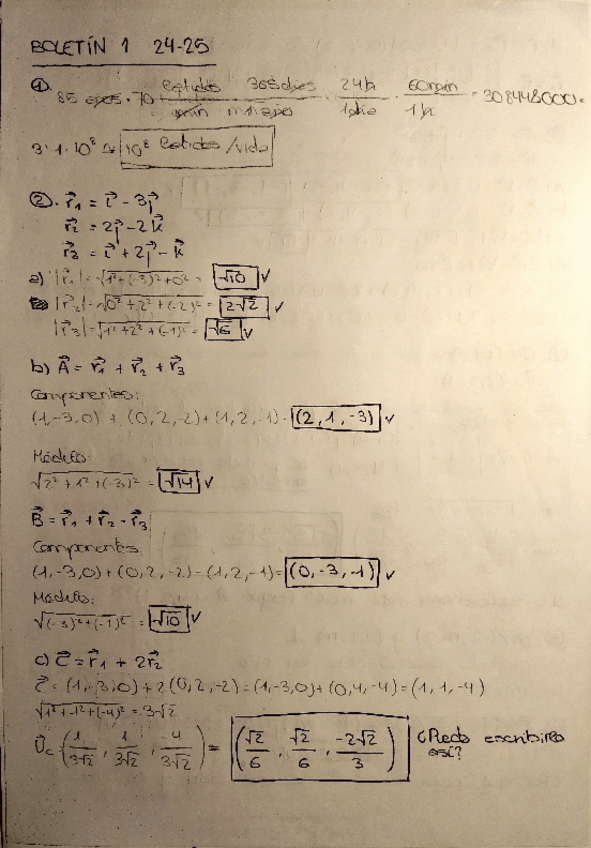 BOLETÍN 1 24-25
①. 85 años · 70 latidos/min · 365 días/1 año · 24h/1 día · 60min/1h = 3084480000 =
3'1·10⁸ ≈ 10⁸ latidos/vida
②. r⃗₁ = i⃗ - 3j⃗
r⃗₂ = 2j⃗ - 2k⃗
r⃗₃ = i⃗ + 2j⃗ - k⃗
a) |r⃗₁| = √1²+(-3)²+0² = √10 ✓
|r⃗₂| = √0²+2²+(-2)² = 2√2 ✓
|r⃗₃| = √1²+2²+(-1)² = √6 ✓
b) A⃗ = r⃗₁ + r⃗₂ + r⃗₃
Componentes:
(1,-3,0) + (0,2,-2) + (1,2,-1) = (2,1,-3) ✓
Módulo
√2²+1²+(-3)² = √14 ✓
B⃗ = r⃗₁ + r⃗₂ - r⃗₃
Componentes
(1,-3,0) + (0,2,-2) - (1,2,-1) = (0,-3,-1) ✓
Módulo:
√(-3)²+(-1)² = √10 ✓
c) C⃗ = r⃗₁ + 2r⃗₂
C⃗ = (1,-3,0) + 2(0,2,-2) = (1,-3,0) + (0,4,-4) = (1,1,-4)
√1²+1²+(-4)² = 3√2
U⃗c = (1/3√2, 1/3√2, -4/3√2) = (√2/6, √2/6, -2√2/3) ¿Puedo escribirlo
así?